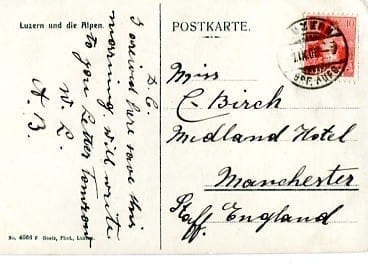 Luzern und die Alpen.
POSTKARTE.
D. C.
I arrived here save this
morning. Will write
to you Letter tomorrow
W. L.
A. B.
Miss
C. Birch
Midland Hotel
Manchester
Staff. England
LUZERN
10
No. 4066 F Goetz, Phot., Luzern.